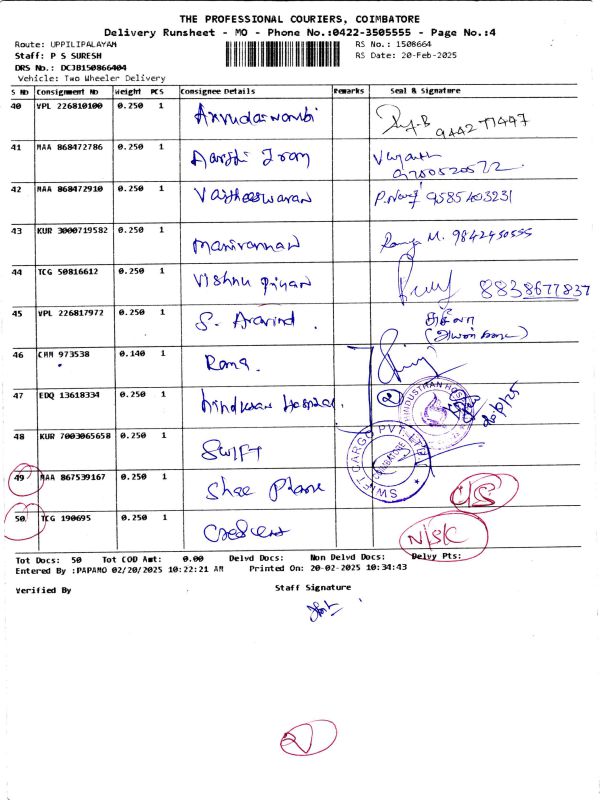 THE PROFESSIONAL COURIERS, COIMBATORE
Delivery Runsheet - MO - Phone No.:0422-3505555 - Page No.:4
Route: UPPILIPALAYAM RS No.: 1508664
Staff: P S SURESH RS Date: 20-Feb-2025
DRS No.: DCJB150866404
Vehicle: Two Wheeler Delivery
S No Consignment No Weight PCS Consignee Details Remarks Seal & Signature
40 VPL 226810100 0.250 1 9442777447
41 MAA 868472786 0.250 1
42 MAA 868472910 0.250 1 Vaitheeswaran
43 KUR 3000719582 0.250 1 Manivannan 9842450555
44 TCG 50816612 0.250 1 Vishnu Priyan 8838677837
45 VPL 226817972 0.250 1 S. Aravind.
46 CHM 973538 0.140 1 Rama.
47 EDQ 13618334 0.250 1 Hindusthan Hospital. 2 20/2/25
48 KUR 7003065658 0.250 1 SWIFT SWIFT CARGO PVT. LTD. COIMBATORE
49 MAA 867539167 0.250 1 Shree
50. TCG 190695 0.250 1 N/S/C
Tot Docs: 50 Tot COD Amt: 0.00 Delvd Docs: Non Delvd Docs: Delvy Pts:
Entered By :PAPAMO 02/20/2025 10:22:21 AM Printed On: 20-02-2025 10:34:43
Verified By Staff Signature
2